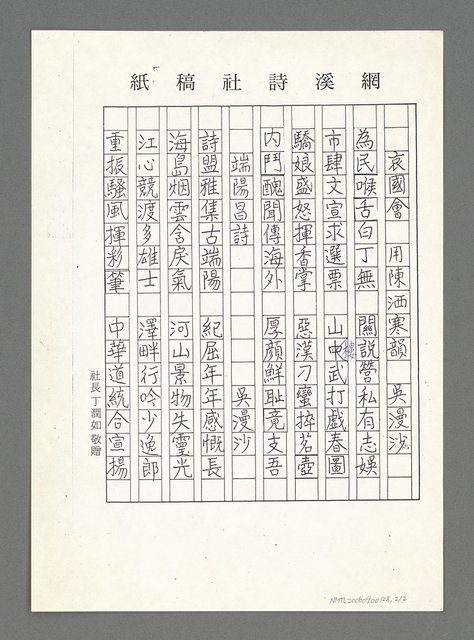 網溪詩社稿紙
哀國會 用陳洒寒韻 吳漫沙
為民喉舌白丁無 關說營私有志娛
市肆文宣求選票 山樓武打戲春圖
驕娘盛怒揮香掌 惡漢刁蠻摔茗壺
內鬥醜聞傳海外 厚顏鮮恥竟支吾
端陽昌詩 吳漫沙
詩盟雅集古端陽 紀屈年年感慨長
海島烟雲含戾氣 河山景物失靈光
江心競渡多雄士 澤畔行吟少逸郎
重振騷風揮彩筆 中華道統合宣揚
社長丁潤如敬贈
NMTL20060900128, 2/2